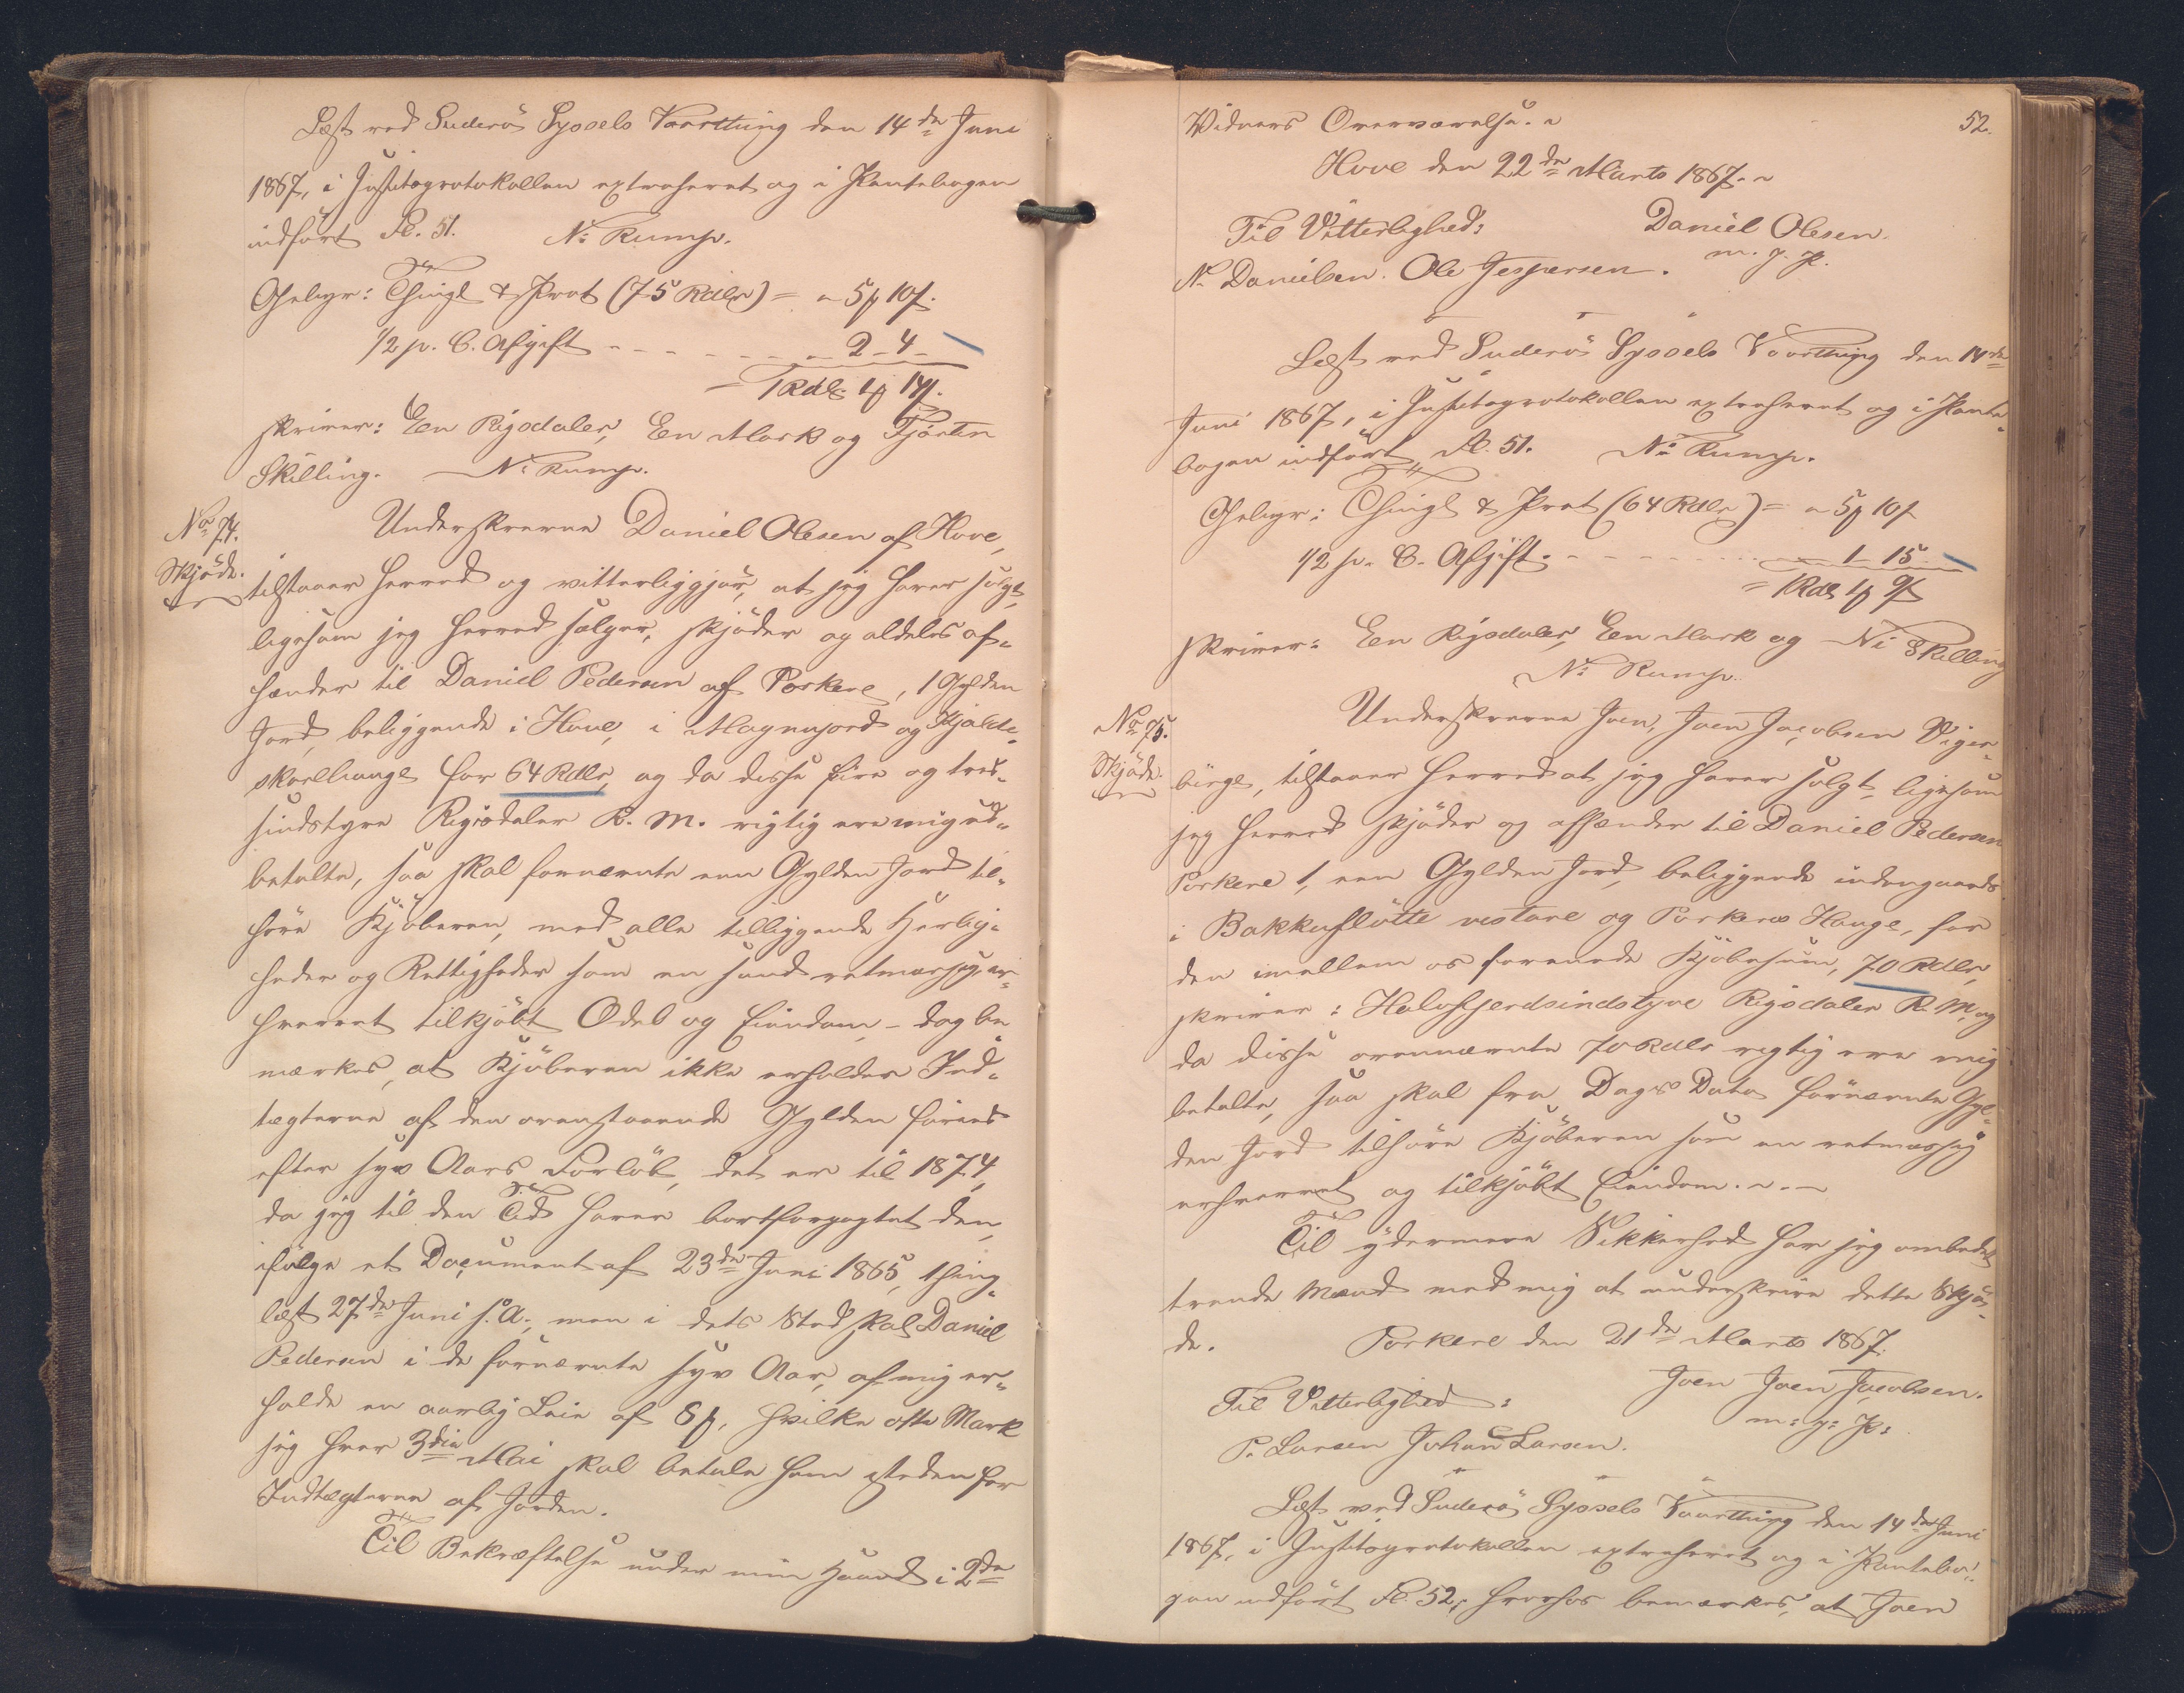 Læst ved Suderøs Syssels Vaarthing den 14de Juni
1867, i Justitsprotokollen extraheret og i Pantebogen
indført Fl. 51. N. Rump.
Gebyr: Thingl & Prot (75 Rdlr) = " 5 ꝑ 10 ß.
1/2 p. C. Afgift - - - - - - 2 - 4 -
= 1 Rdlr 1 ꝑ 14 ß.
skriver: Een Rigsdaler, Een Mark og Fjorten
Skilling. N. Rump.
No 74.
Skjöde.
Underskrevne Daniel Olesen af Hove,
tilstaaer herved og vitterliggjör, at jeg haver solgt,
ligesom jeg herved sælger, skjöder og aldeles af-
hænder til Daniel Pedersen af Porkere, 1 Gylden
Jord, beliggende i Hove, i Magnujord og Kjalde-
skaelhauge for 64 Rdlr, og da disse fire og tred-
sindstyve Rigsdaler R. M. rigtig ere mig ud-
betalte, saa skal fornævnte een Gylden Jord til-
höre Kjöberen, med alle tilliggende Herlig-
heder og Rettigheder som en sand retmæssig er-
hvervet tilkjöbt Odel og Eiendom, - dog be-
mærkes, at Kjöberen ikke erholder Ind-
tægterne af den ovenstaaende Gylden förend
efter syv Aars Forløb, det er til 1874,
da jeg til den Tid haver bortforpagtet den,
ifølge et Document af 23de Juni 1865, thing-
læst 27de Juni s. A., men i dets Sted skal Daniel
Pedersen i de fornævnte syv Aar, af mig er-
holde en aarlig Leie af 8 ꝑ, hvilke otte Mark
jeg hver 3die Mai skal betale ham isteden for
Indtægterne af Jorden.
Til Bekræftelse under min Haand i 2de
52.
Vidners Overværelse. "
Hove den 22de Marts 1867. "
Til Vitterlighed: Daniel Olesen.
N. Danielsen. Ole Jespersen. m. f. P.
Læst ved Suderøs Syssels Vaarthing den 14de
Juni 1867, i Justitsprotokollen extraheret og i Pante-
bogen indført, Fl. 51. N. Rump.
Gebyr: Thingl & Prot (64 Rdlr) = " 5 ꝑ 10 ß
1/2 p. C. Afgift. - - - - - - 1 - 15.
= 1 Rdlr 1 ꝑ 9 ß
skriver: Een Rigsdaler, Een Mark og Ni Skilling
N. Rump.
No 75.
Skjöde.
Underskrevne Joen, Joen Jacobsen Viger-
birge, tilstaaer herved at jeg haver solgt, ligesom
jeg herved skjöder og afhænder til Daniel Pedersen
Porkere 1, een Gylden Jord, beliggende indengaards
i Bakkufløtte vestare og Porkeres Hauge, for
den imellem os forenede Kjöbesum, 70 Rdlr,
skriver: Halvfjerdsindstyve Rigsdaler R. M, og
da disse ovennævnte 70 Rdlr rigtig ere mig
betalte, saa skal fra Dags Dato fornævnte Gyl-
den Jord tilhöre Kjöberen som en retmæssig
erhvervet og tilkjöbt Eiendom. - . -
Til ydermere Sikkerhed har jeg ombedet
tvende Mænd med mig at underskrive dette Skjö-
de. Porkere den 21de Marts 1867.
Til Vitterlighed: Joen Joen Jacobsen.
P. Larsen Johan Larsen. m: f: P:
Læst ved Suderø Syssels Vaarthing den 14de Juni
1867, i Justitsprotokollen extraheret og i Pantebo-
gen indført Fl. 52; hvorhos bemærkes, at Joen